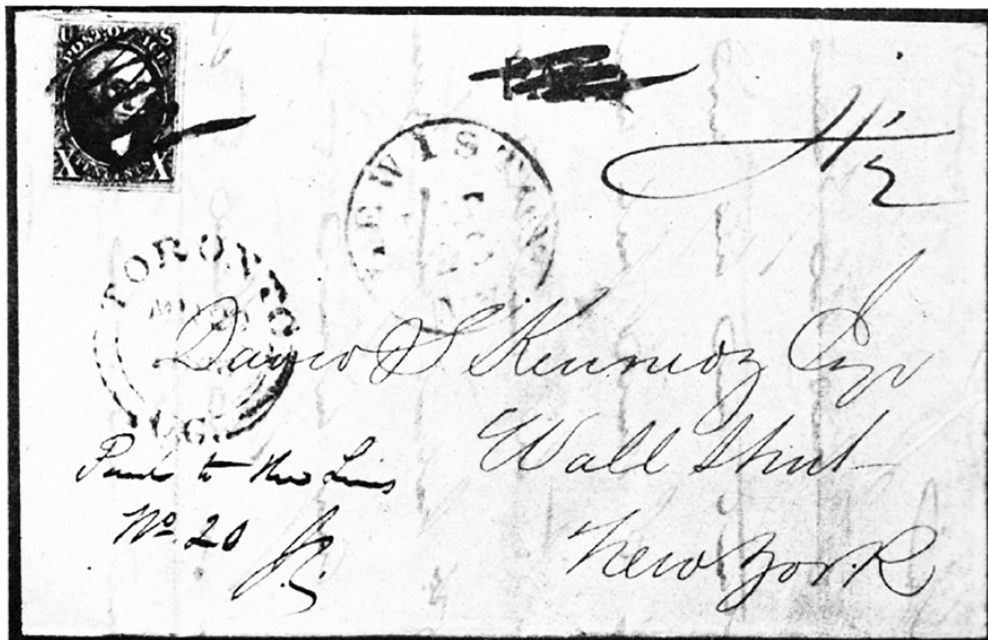 POST OFFICE
X X
PAID
4½
LEWISTON
TORONTO
U.C.
David S Kennedy Esqr
Wall Street
New York
Paid to the Lines
No 20